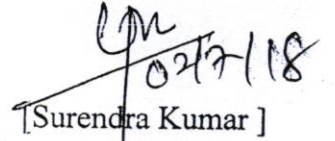 02/7/18
[Surendra Kumar ]